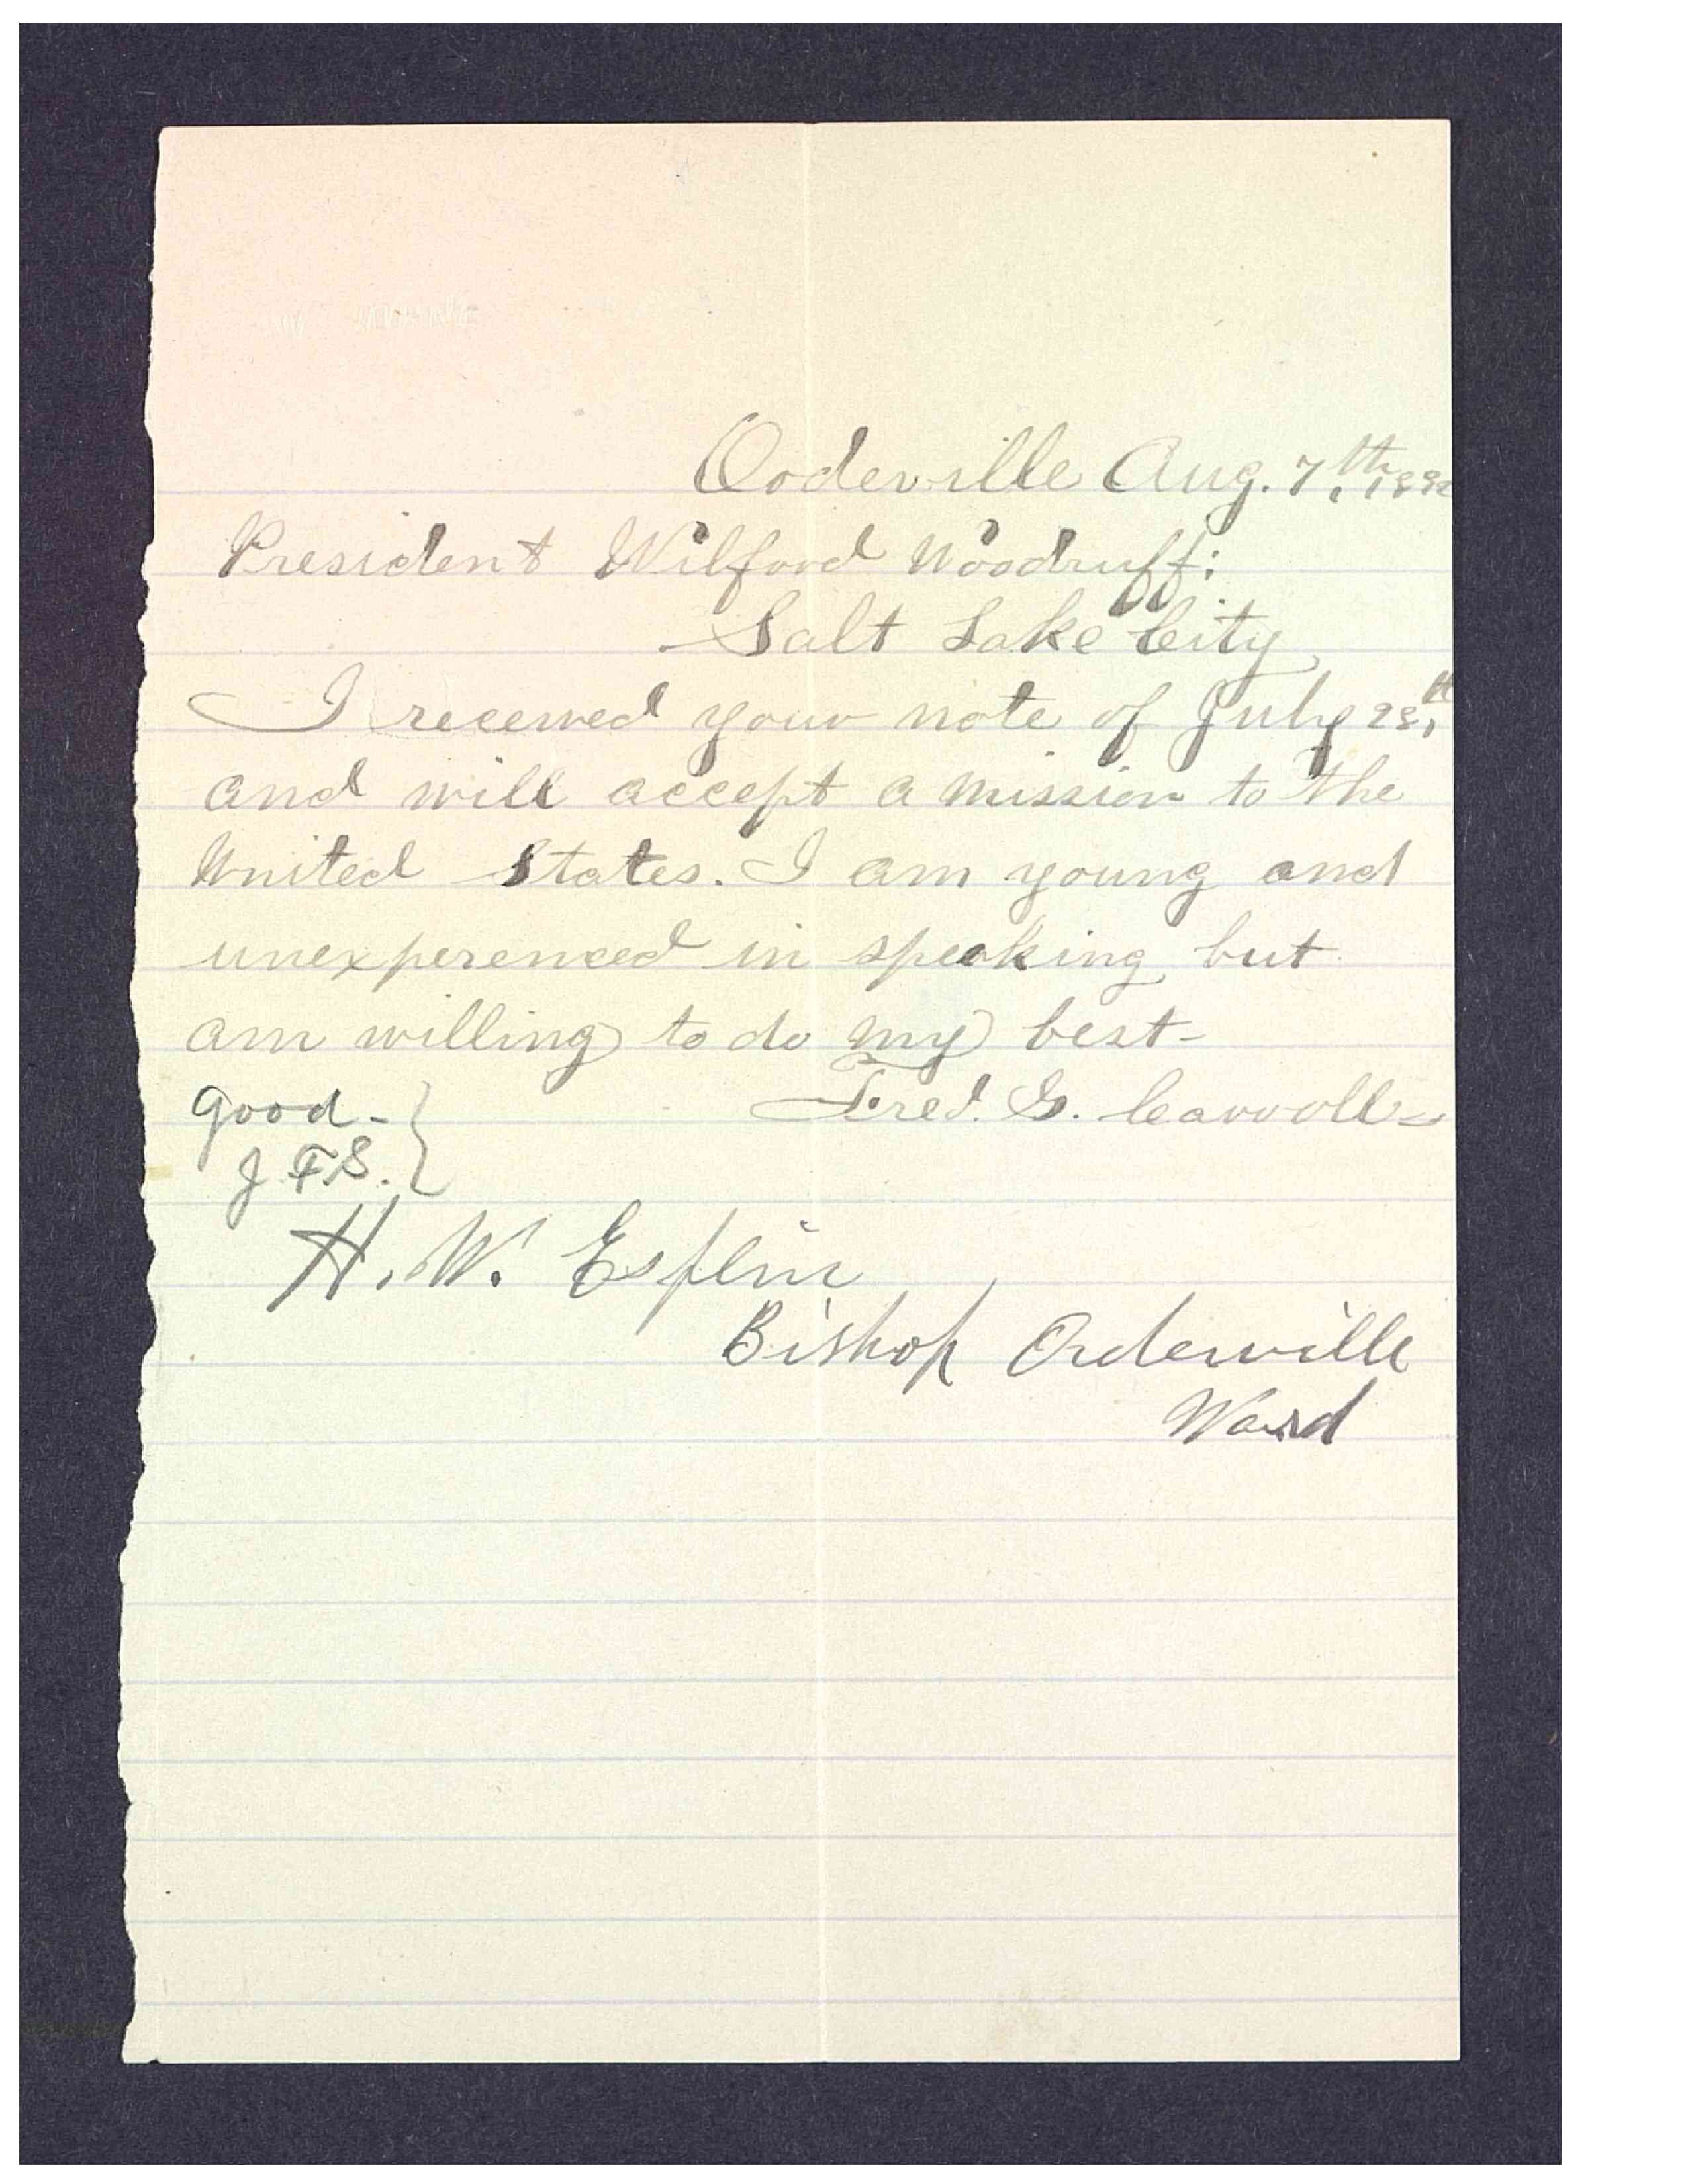 Orderville Aug. 7th, 1892
President Wilford Woodruff:
Salt Lake City
I received your note of July 28th,
and will accept a mission to the
United States. I am young and
unexperenced in speaking, but
am willing to do my best-
Fred. G. Carroll
Good-
J. F. S.
H. W. Esplin
Bishop Orderville
Ward